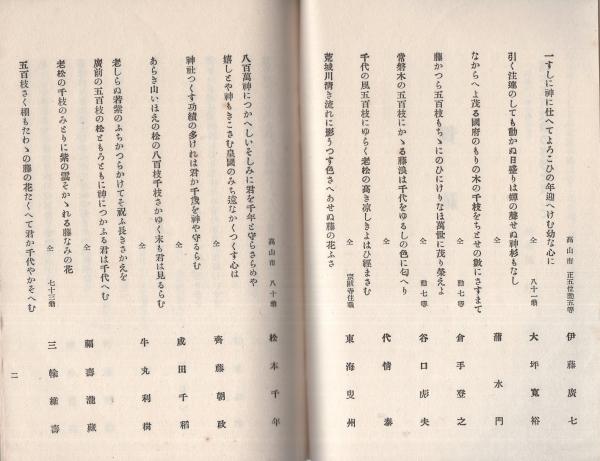 一すしに神に仕へてよろこひの年迎へけむ幼な心に
高山市 正五位勲五等 伊藤廣七
引く注連のしても動かぬ日盛りは蟬の聲せぬ神杉もなし
仝 八十一翁 大坪寬裕
なからへよ茂る國府のもりの木の千枝をちとせの數にさすまて
仝 蒲水門
藤かつら五百枝もちゝにのひにけりなほ萬世に茂り榮えよ
仝 勲七等 倉手登之
常磐木の五百枝にかゝる藤浪は千代をゆるしの色に匂へり
仝 勲七等 谷口彪夫
千代の風五百枝にゆらく老松の高き涼しきよはひ經まさむ
仝 代情泰
荒城川清き流れに影うつす色さへあせぬ藤の花ふさ
仝 宗猷寺住職 東海叟州
八百萬神につかへしいそしみに君を千年と守らさらめや
高山市 八十翁 松本千年
嬉しとや神もきこさむ皇國のみち遠なかくつくす心は
仝 齋藤朝政
神社につくす功績の多けれは君か千歳を神や守るらむ
仝 成田千稻
あらき山いほえの松の八百枝千枝さかゆく末も君は見るらむ
仝 牛丸利樹
老しらぬ若紫のふちかつらかけてそ祝ふ長きさかえを
廣前の五百枝の松ともろともに神につかふる君は千代へむ
仝 福壽瀧藏
老松の千枝のみとりに紫の雲そかゝれる藤なみの花
五百枝さく棚もたわゝの藤の花たくへて君か千代やかそへむ
仝 七十三翁 三輪維壽
二